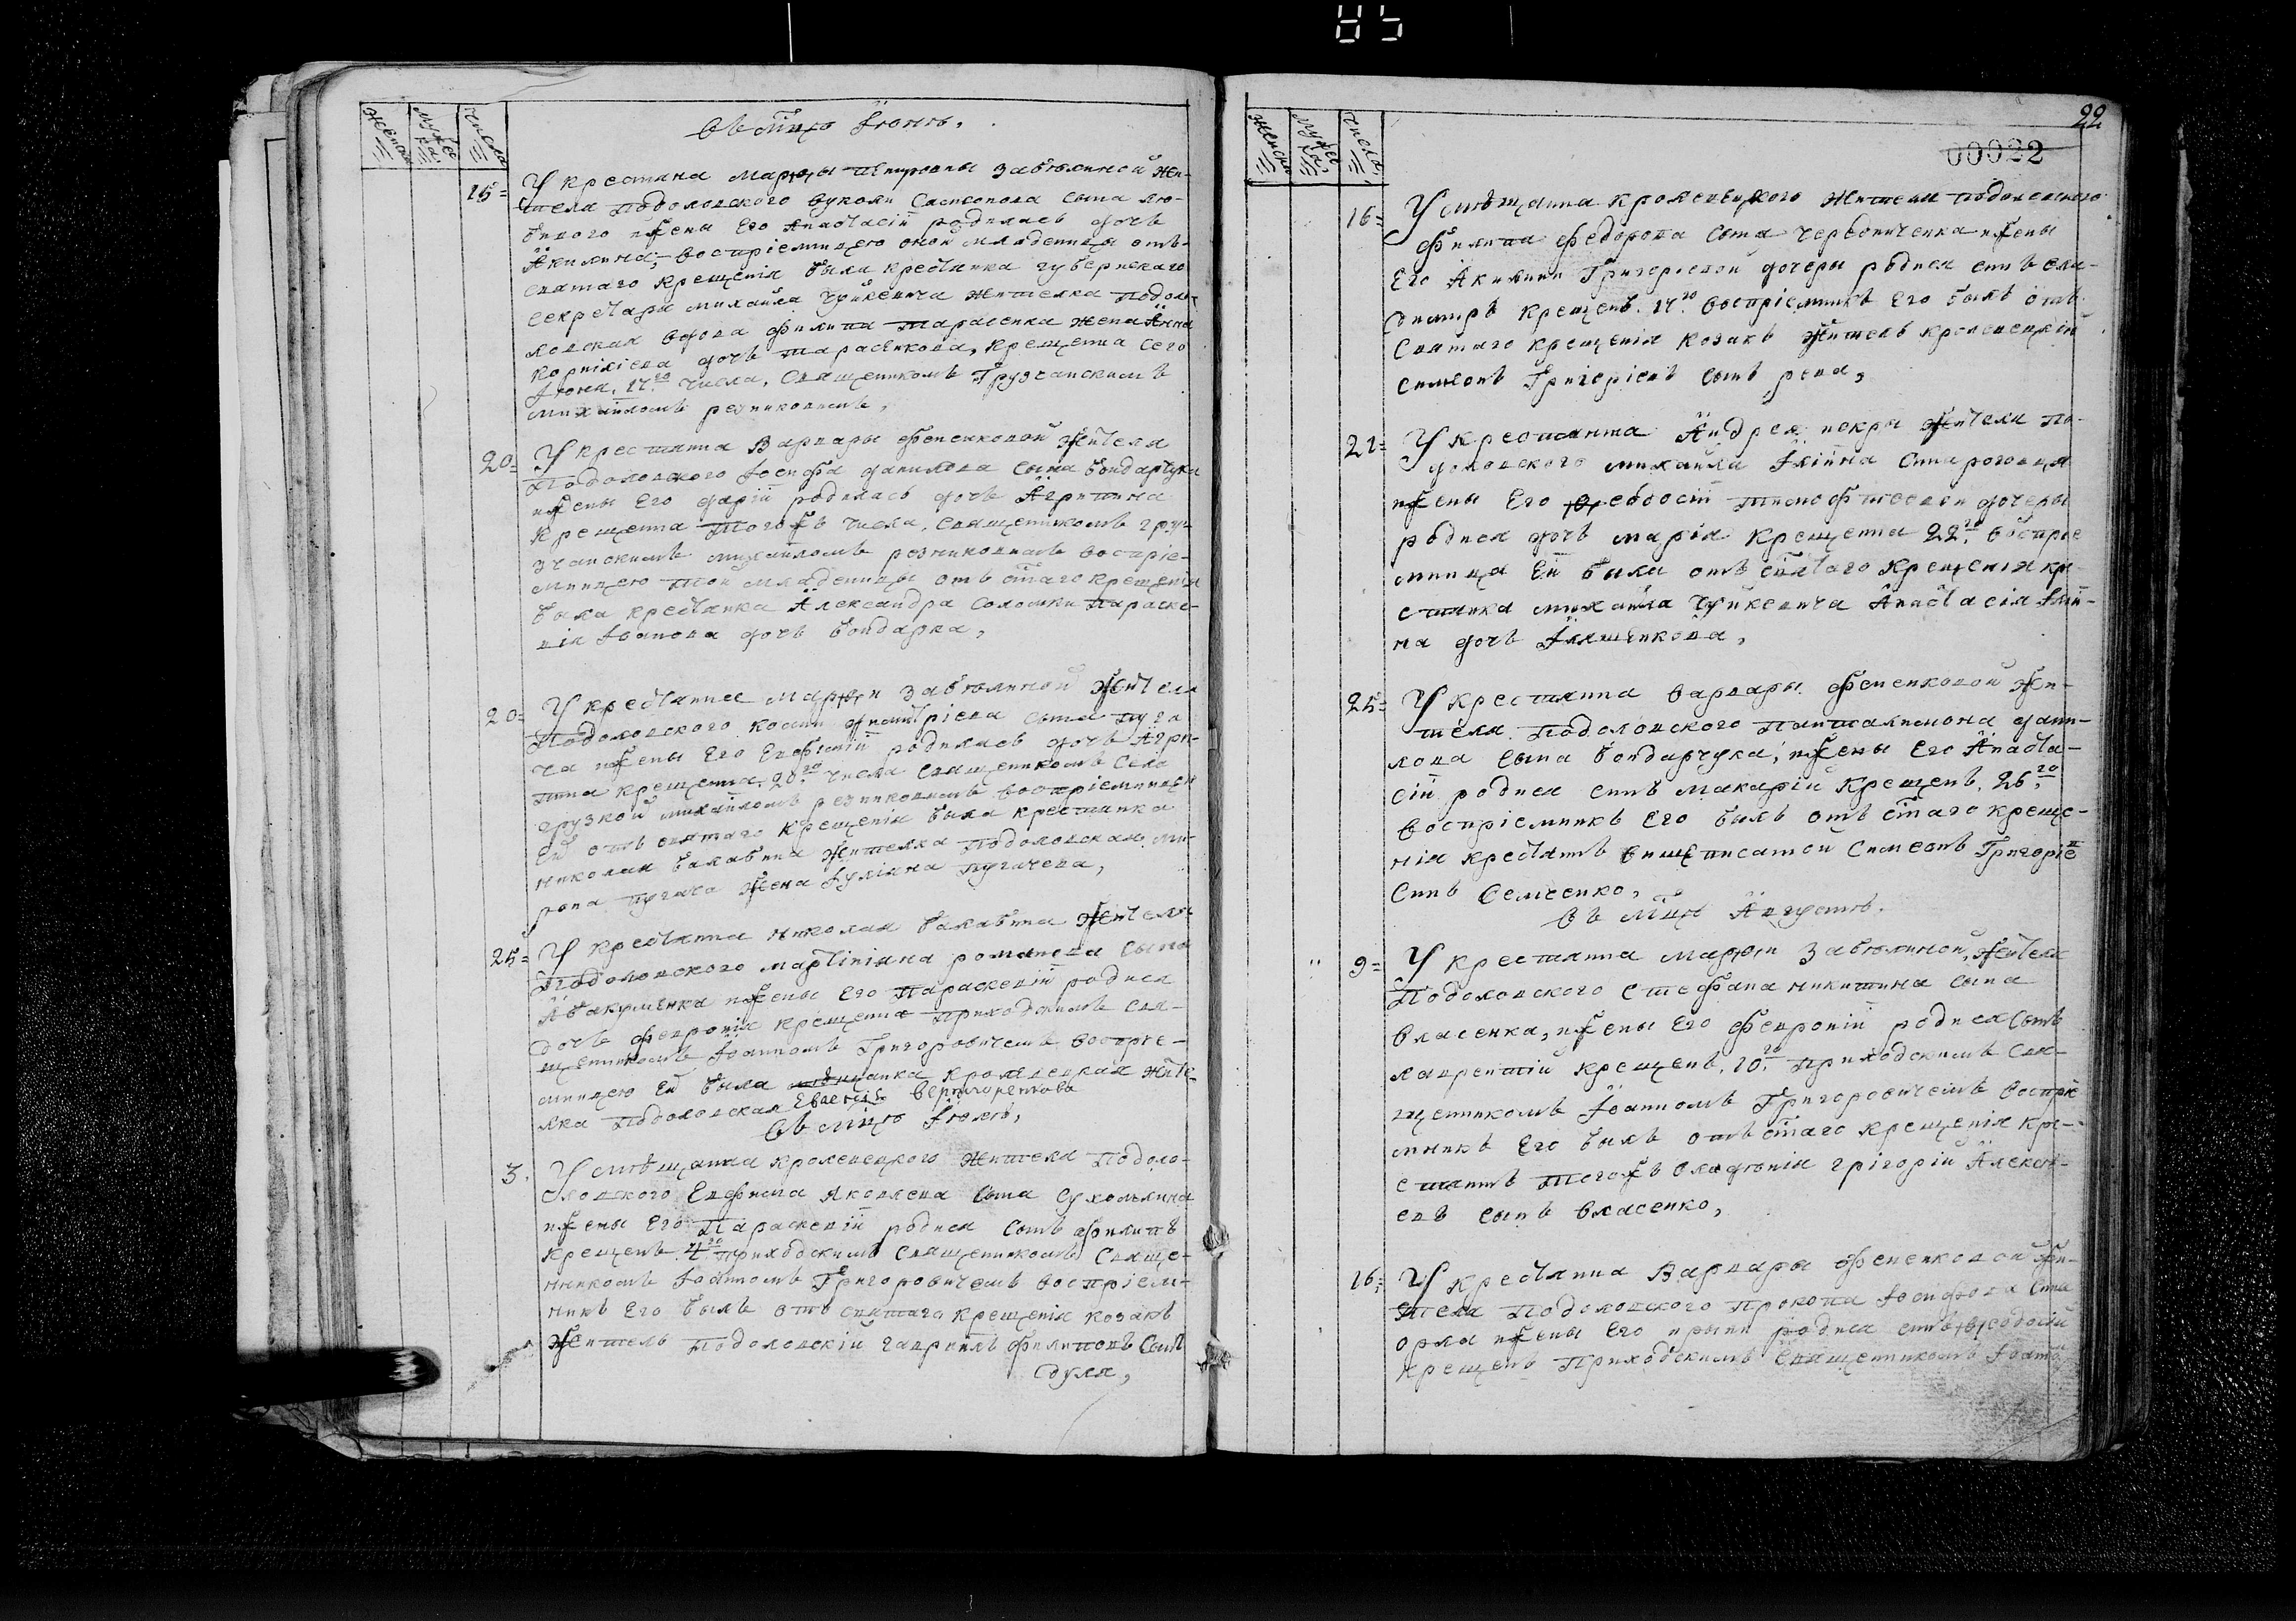 85
женска
мужеска
числа
въ мцѣ Іюнѣ,
15= У крестяна марѳы петровны Завюлиной жи-
теля подоловского вуколи Симеонова сына лю-
бивого ижены его Анастасіи родилась дочь
Акилина; воспріемницею оной младеницы отъ
святаго крещенія была крестянка губернскаго
секретара михайла Чуйкевича жителка подоло-
ловская вдова филипа тарасенка жена Анна
корніліева дочь тарасенкова, крещенна сего
Іюня. 17го числа, священикомъ Грузчанскимъ
михайломъ резниковимъ,
20= У крестянна Варвары фененковой жителя
подоловского Іосифа данилова сына бондарчука
ижены его даріи родилась дочь Агрипина
крещенна тогожъ числа, священникомъ гру-
зчанскимъ михайломъ резниковимъ воспріе-
мницею той младеницы отъ стаго крещенія
была крестянка Александра Соломки параске-
вія Іванова дочь бондарка,
20= У крестянна марѳи завюлиной жителя
подоловского косми димитріева сына пуга
ча ижены его Евфиміи родилась дочь Агри-
пина крещенна. 20го числа священикомъ села
грузкой михайломъ резниковимъ воспріемницей
ей отъ святаго крещенія была крестянка
николая балабина жителка подоловская ми-
рона пугача жена Іуліяна пугачева,
25= У крестянна николая балабина жителя
подоловского мартініяна романова сына
Авакуменка ижены его параскевіи родися
дочь февронія крещенна приходскимъ свя-
щенникомъ Іоанномъ Григоровичемъ воспріе-
мницею ей была мѣщанка кролевецкая жите
лка подоловская Евдокія вернигоренкова
въ мцѣ Іюлѣ,
3. У мѣщанна кролевецкого жителя подоло-
оловского Евфима яковлева сына Сухомлина
ижены его параскевіи родися сынъ филипъ
крещенъ. 4го приходскимъ священникомъ свяще-
нникомъ Іоанномъ Григоровичемъ воспріем-
никъ его былъ отъ святаго крещенія козакъ
житель подоловскій гавриилъ филиповъ сынъ
сдуля,
22
00022
женска
мужеска
числа
16= У мѣщанна кролевецкого жителя подоловского
филипа федорова сына червониченка ижены
его Акилини Григоріевой дочеры родися синъ вла-
димиръ крещенъ. 17го воспріемникъ его былъ отъ
святаго крещенія козакъ житель кролевецкій
симеонъ Григоріевъ сынъ репа,
21= У крестянна Андрея искри жителя по-
доловского михайла Іліина Старогонця
ижены его ѳеодосіи тимофтеевои дочеры
родися дочь марія крещенна 22го воспріе
мница ей была отъ святаго крещенія кре
стянка михайла Чуйкевича Анастасія Іліи-
на дочь Іляшенкова,
25= У крестянна варвары фененковой жи-
теля подоловского панталимона дани-
лова сына бондарчука; ижены его Анаста-
сіи родися синъ макарій крещенъ. 26го
воспріемникъ его былъ отъ стаго креще-
нія крестянъ вишеписаной Симеонъ Григоріе
синъ Семеенко,
въ мцѣ Августѣ.
9= У крестянна марѳи завюлиной, жителя
подоловского стефана никитина сына
власенка, ижены его февроніи родися сынъ
лаврентій крещенъ. 10го приходскимъ свя-
щенникомъ Іоанномъ Григоровичемъ воспріе
мникъ его былъ отъ стаго крещенія кре-
стянъ тогожъ владѣнія грігорій Алексѣ-
евъ сынъ власенко,
16= У крестянна Варвары фененковой жи-
теля подоловского прокопа Іосифова сина
орла ижены его ирыны родися синъ ѳеодосій
крещенъ приходскимъ священникомъ Іоано